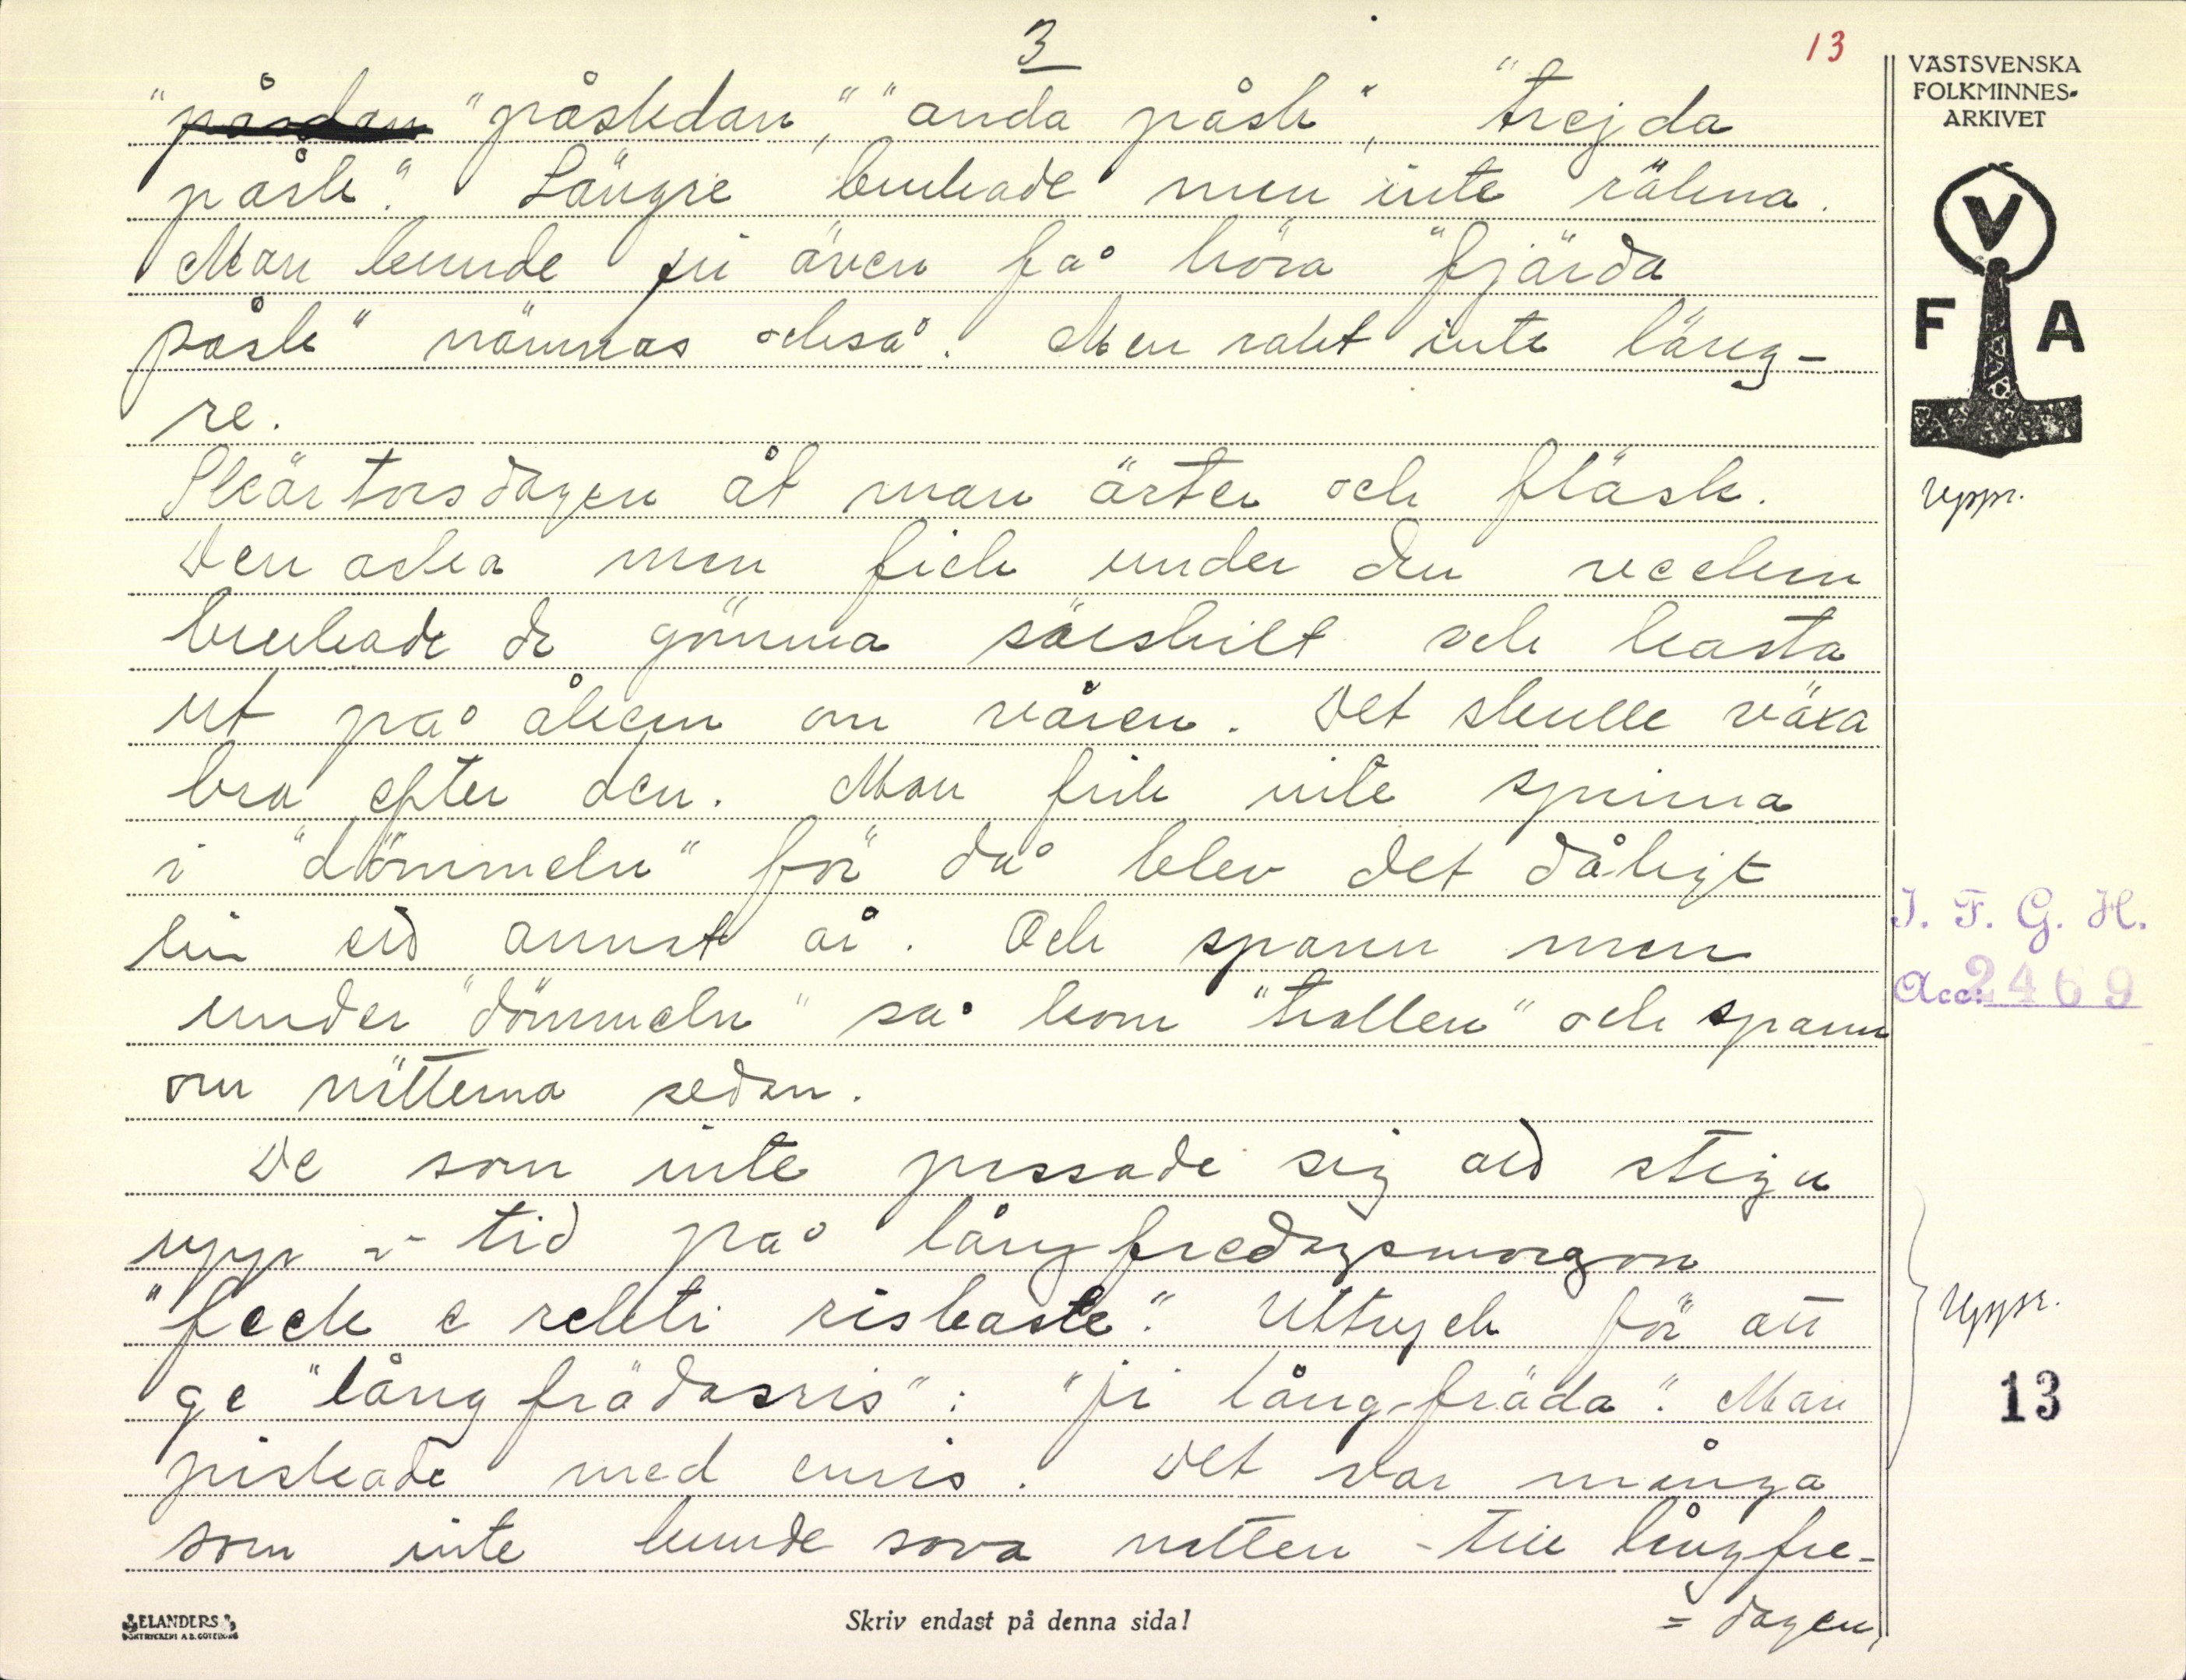 3
13
VÄSTSVENSKA
FOLKMINNES-
ARKIVET
"påsdan "påskdan", "anda påsk", "trejda
påsk". Längre brukade men inte räkna.
Man kunde ju även få höra "fjärda
påsk" nämnas också. Men rakt inte läng-
re.
Skärtorsdagen åt man ärter och fläsk.
Den aska men fick under den veckan
brukade de gömma särskilt och kasta
ut på åkern om våren. Det skulle växa
bra efter den. Man fick inte spinna
i "dömmeln" för då blev det dåligt
lin ed annat år. Och spann men
under "dömmeln" så kom "trollen" och spann
om nätterna sedan.
De som inte passade sig ad stiga
upp i tid på långfredagsmorgon
"feck e rekti riskaste". Uttryck för att
ge "långfrädasris": "ji lång-fräda". Man
piskade med enris. Det var många
som inte kunde sova natten till långfre-
= dagen,
V
F A
uppr.
I. F. G. H.
Acc. 2469
uppr.
13
ELANDERS
BOKTRYCKERI A.B. GÖTEBORG
Skriv endast på denna sida!